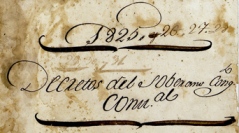 1825, y 26. 27. 28
Decretos del Soberano Congº
Conu.al